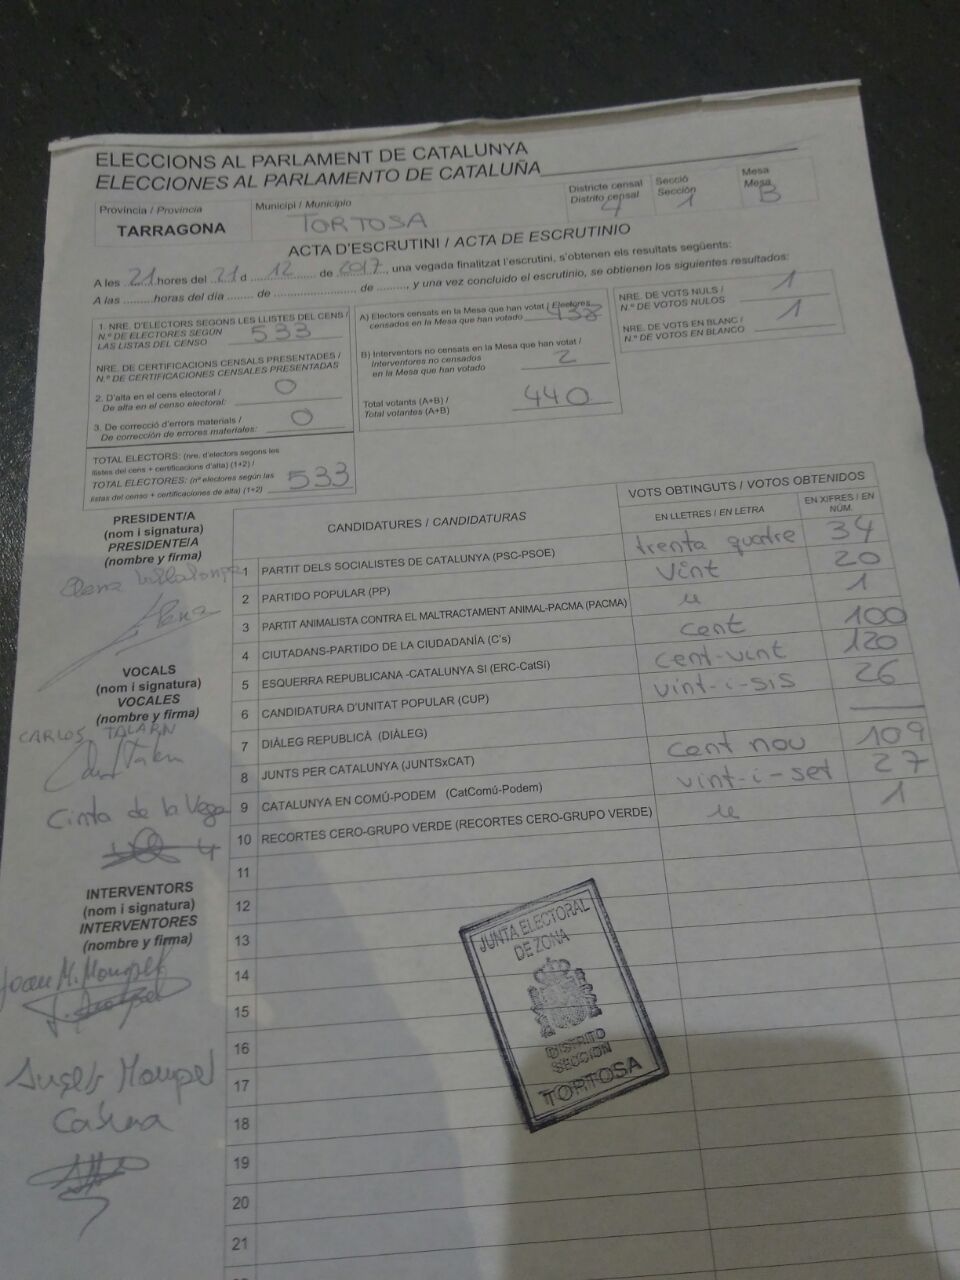 ELECCIONS AL PARLAMENT DE CATALUNYA
ELECCIONES AL PARLAMENTO DE CATALUÑA
Província / Provincia
TARRAGONA
Municipi / Municipio
TORTOSA
Districte censal
Distrito censal
4
Secció
Sección
1
Mesa
Mesa
B
ACTA D'ESCRUTINI / ACTA DE ESCRUTINIO
A les 21 hores del 21 d 12 de 2017, una vegada finalitzat l'escrutini, s'obtenen els resultats següents:
A las ......... horas del día ........ de ........................ de ........, y una vez concluido el escrutinio, se obtienen los siguientes resultados:
1. NRE. D'ELECTORS SEGONS LES LLISTES DEL CENS /
N.º DE ELECTORES SEGÚN
LAS LISTAS DEL CENSO
533
NRE. DE CERTIFICACIONS CENSALS PRESENTADES /
N.º DE CERTIFICACIONES CENSALES PRESENTADAS
2. D'alta en el cens electoral /
De alta en el censo electoral:
0
3. De correcció d'errors materials /
De corrección de errores materiales:
0
TOTAL ELECTORS: (nre. d'electors segons les
llistes del cens + certificacions d'alta) (1+2) /
TOTAL ELECTORES: (nº electores según las
listas del censo + certificaciones de alta) (1+2)
533
A) Electors censats en la Mesa que han votat / Electores
censados en la Mesa que han votado
438
B) Interventors no censats en la Mesa que han votat /
Interventores no censados
en la Mesa que han votado
2
Total votants (A+B) /
Total votantes (A+B)
440
NRE. DE VOTS NULS /
N.º DE VOTOS NULOS
1
NRE. DE VOTS EN BLANC /
N.º DE VOTOS EN BLANCO
1
PRESIDENT/A
(nom i signatura)
PRESIDENTE/A
(nombre y firma)
VOCALS
(nom i signatura)
VOCALES
(nombre y firma)
CARLOS TALARN
Cinta de la Vega
INTERVENTORS
(nom i signatura)
INTERVENTORES
(nombre y firma)
CANDIDATURES / CANDIDATURAS
VOTS OBTINGUTS / VOTOS OBTENIDOS
EN LLETRES / EN LETRA
EN XIFRES / EN NÚM.
1 PARTIT DELS SOCIALISTES DE CATALUNYA (PSC-PSOE) trenta quatre 34
2 PARTIDO POPULAR (PP) vint 20
3 PARTIT ANIMALISTA CONTRA EL MALTRACTAMENT ANIMAL-PACMA (PACMA) u 1
4 CIUTADANS-PARTIDO DE LA CIUDADANÍA (C's) cent 100
5 ESQUERRA REPUBLICANA -CATALUNYA SI (ERC-CatSí) cent-vint 120
6 CANDIDATURA D'UNITAT POPULAR (CUP) vint-i-sis 26
7 DIÀLEG REPUBLICÀ (DIÀLEG)
8 JUNTS PER CATALUNYA (JUNTSxCAT) cent nou 109
9 CATALUNYA EN COMÚ-PODEM (CatComú-Podem) vint-i-set 27
10 RECORTES CERO-GRUPO VERDE (RECORTES CERO-GRUPO VERDE) u 1
11
12
13
14
15
16
17
18
19
20
21
JUNTA ELECTORAL
DE ZONA
DISTRITO
SECCIÓN
TORTOSA